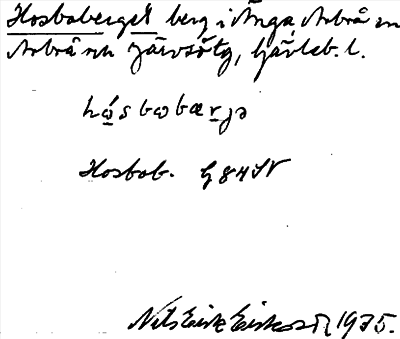 Hosboberget berg i Änga Arbrå sn
Arbrå och Järvsö tg, Gävleb. l.
hósbobærjə
Hosbob. G 84 SV
Nils Erik Eriksson 1975.